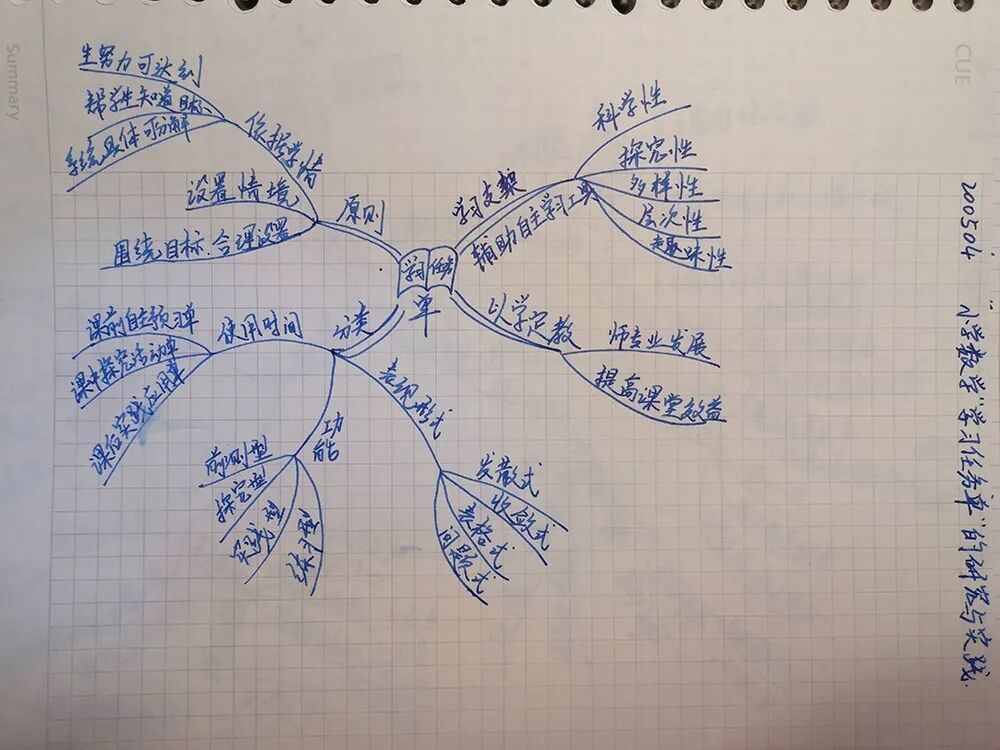 Summary
CUE
200504 小学数学"学习任务单"的研究与实践
学习任务
单
原则
依据学情
生努力可达到
帮学生知道目标
系统具体可分解
设置情境
围绕目标.合理设置
学习支架
辅助自主学习工具
科学性
探究性
多样性
层次性
趣味性
以学定教
师专业发展
提高课堂效益
分类
使用时间
课前自主预习单
课中探究活动单
课后实践应用单
功能
前测型
探究型
实践型
练习型
表现形式
发散式
收敛式
表格式
问题式